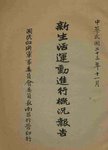 中華民國二十三年十一月
新生活運動進行概況報告
國民政府軍事委員會委員長南昌行營印行